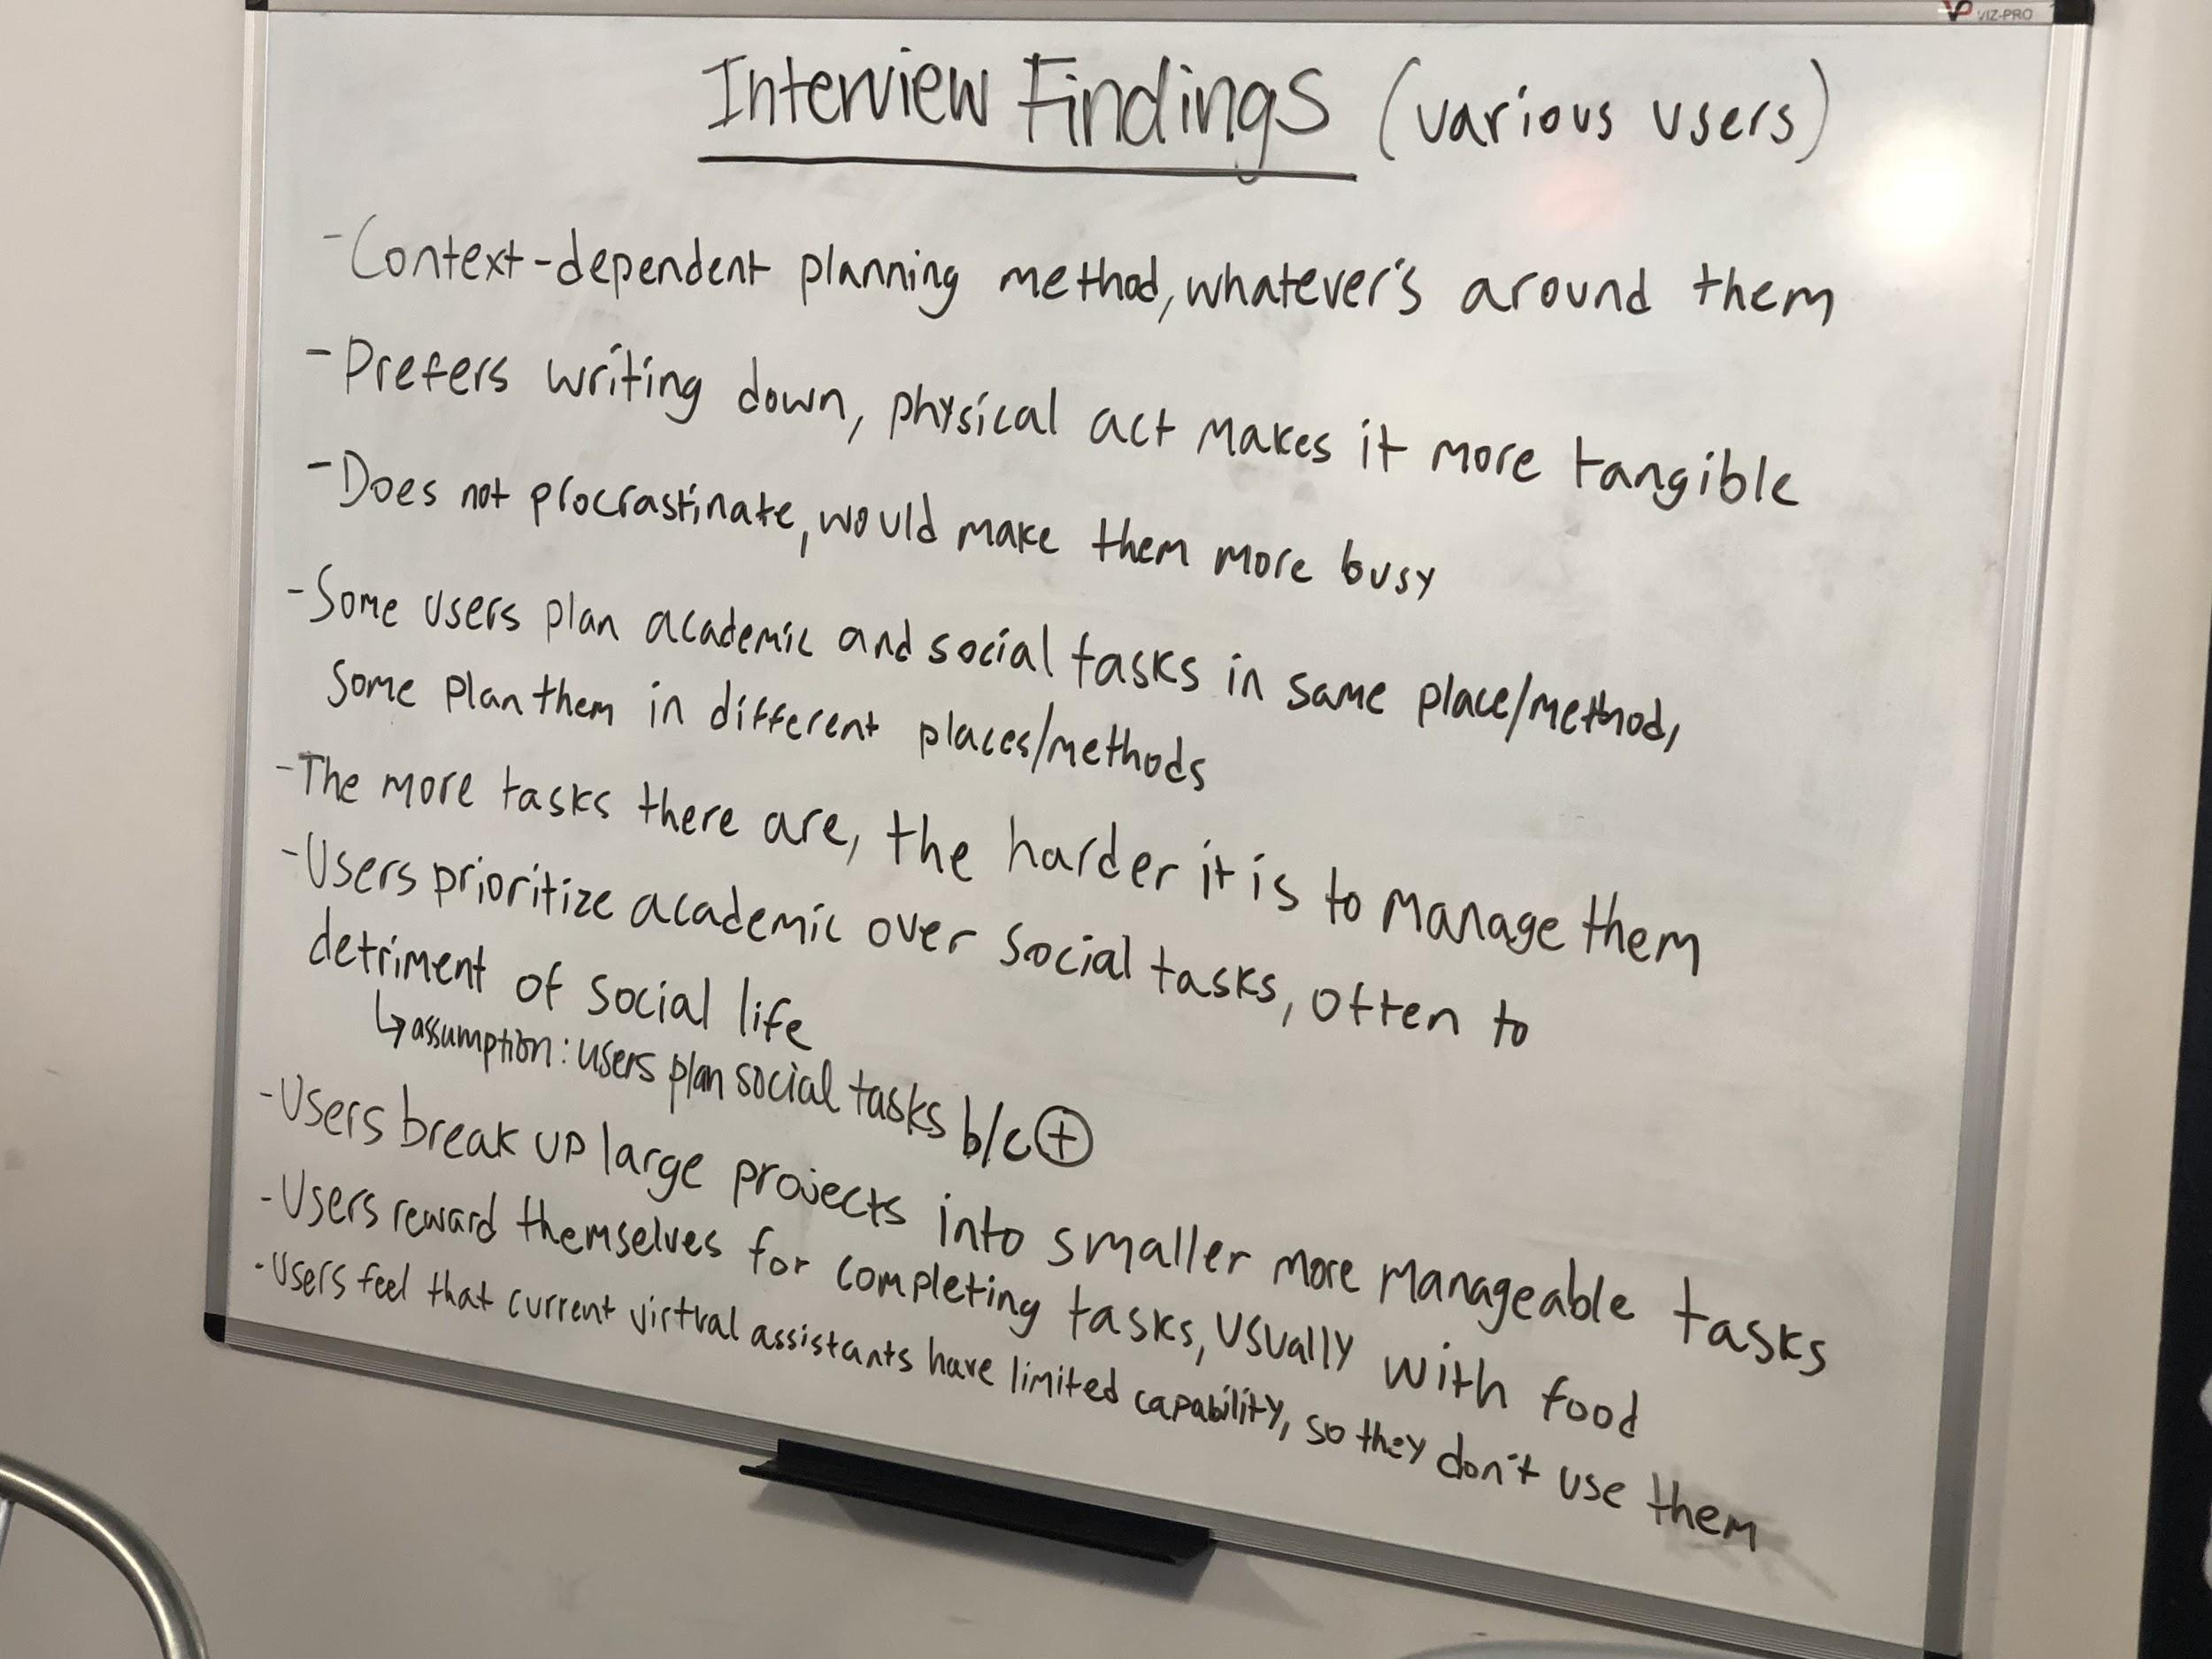 VP VIZ-PRO
Interview Findings (various users)
- Context-dependent planning method, whatever's around them
- Prefers writing down, physical act makes it more tangible
- Does not procrastinate, would make them more busy
- Some users plan academic and social tasks in same place/method,
some plan them in different places/methods
- The more tasks there are, the harder it is to manage them
- Users prioritize academic over social tasks, often to
detriment of social life
↳ assumption: users plan social tasks b/c ⊕
- Users break up large projects into smaller more manageable tasks
- Users reward themselves for completing tasks, usually with food
- Users feel that current virtual assistants have limited capability, so they don't use them